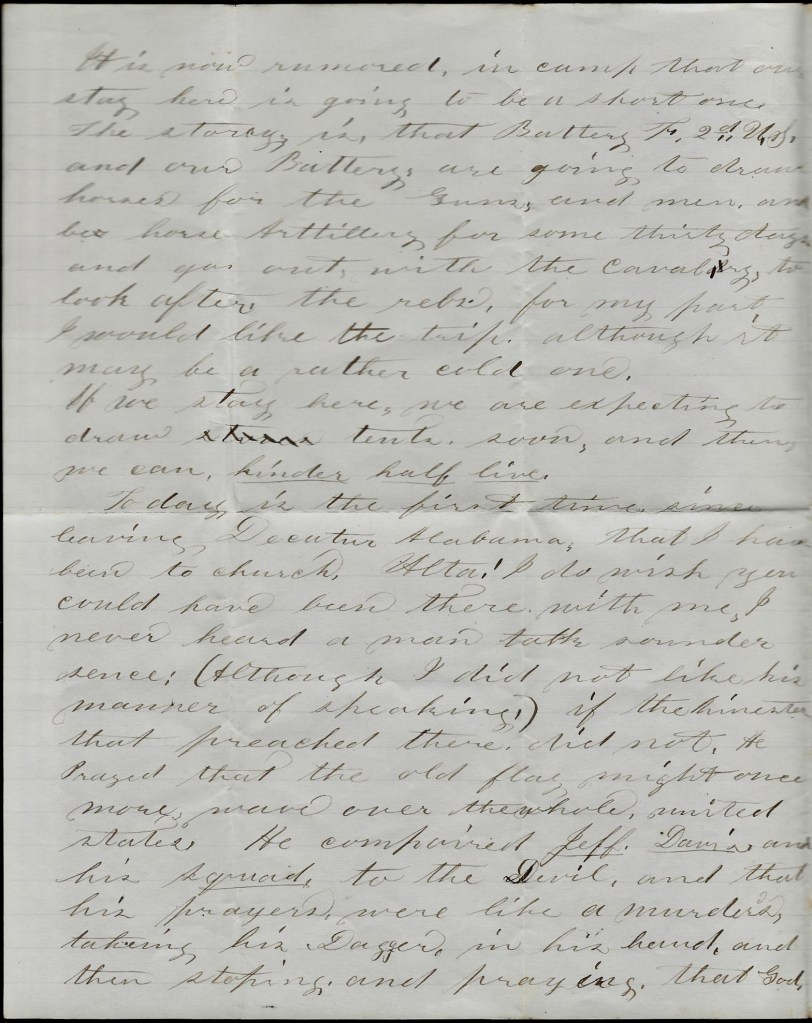 It is now rumored, in camp that our
stay here is going to be a short one.
The storey, is, that Battery F, 2d, U,S,
and our Battery, are going to draw
horses for the Guns, and men, and
be horse Arttillery for some thirty days
and go out, with the Cavalry, to
look after, the rebs, for my part,
I would like the trip. although it
may be a rather cold one.
If we stay here, we are expecting to
draw tents. soon, and then,
we can, kinder half live.
To day, is the first time, since
leaving, Decatur Alabama, that I have
been to church, Alta! I do wish you
could have been there. with me, I
never heard a man talk sounder
sence; (Although I did not like his
manner of speaking,) if the
that preached there. did not, He
Prayed that the old flag, might once
more, wave over the whole, united
states He compaired Jeff. Davis and
his squad, to the Devil, and that
his prayers, were like a murder's,
taking his Dagger, in his hand, and
then stoping. and praying, that God,